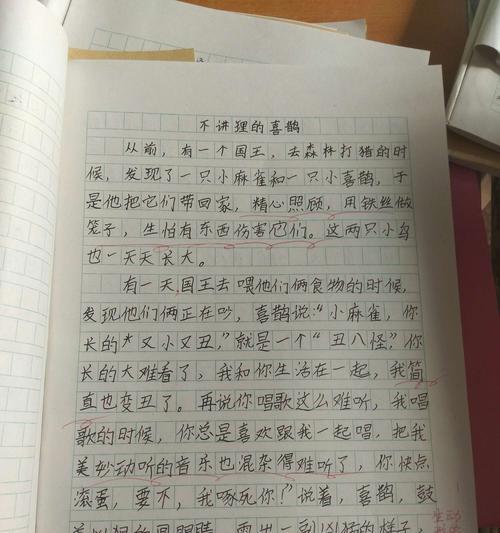 不讲理的喜鹊
从前，有一个国王，去森林打猎的时
候，发现了一只小麻雀和一只小喜鹊，于
是他把它们带回家，精心照顾，用铁丝做
笼子，生怕有东西伤害它们。这两只小鸟
也一天天长大。
有一天，国王去喂他们俩食物的时候，
发现他们俩正在吵，喜鹊说："小麻雀，你
长的"又小又丑，"就是一个"丑八怪，"你
长的太难看了，我和你生活在一起，我简
直也变丑了。再说你唱歌这么难听，我唱
歌的时候，你总是喜欢跟我一起唱，把我
美妙动听的音乐也混杂得难听了，你快点
滚蛋，要不，我啄死你！"说着，喜鹊，鼓
的圆眼睛，露出一副凶猛的样子，
生动